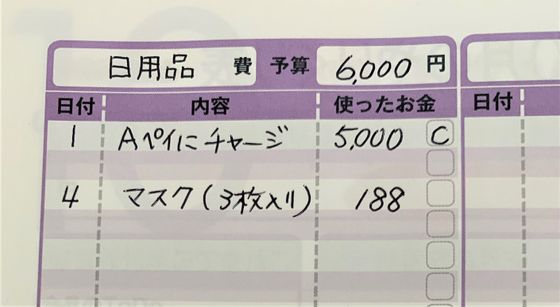 日用品 費 予算 6,000 円
日付 内容 使ったお金 日付
1 Aペイにチャージ 5,000 C
4 マスク(3枚入り) 188